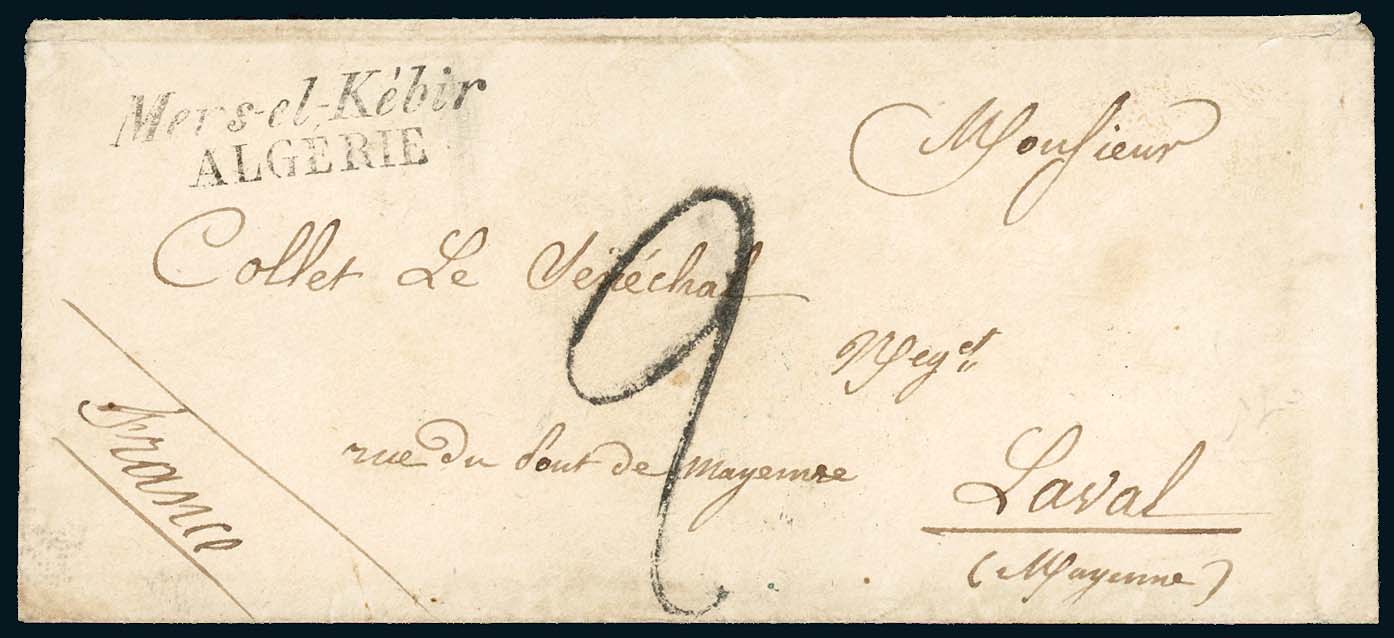 Mers-el-Kébir
ALGÉRIE
Monsieur
Collet Le Sénéchal
Neg^et
rue du Pont de Mayenne
Laval
(Mayenne)
France
2